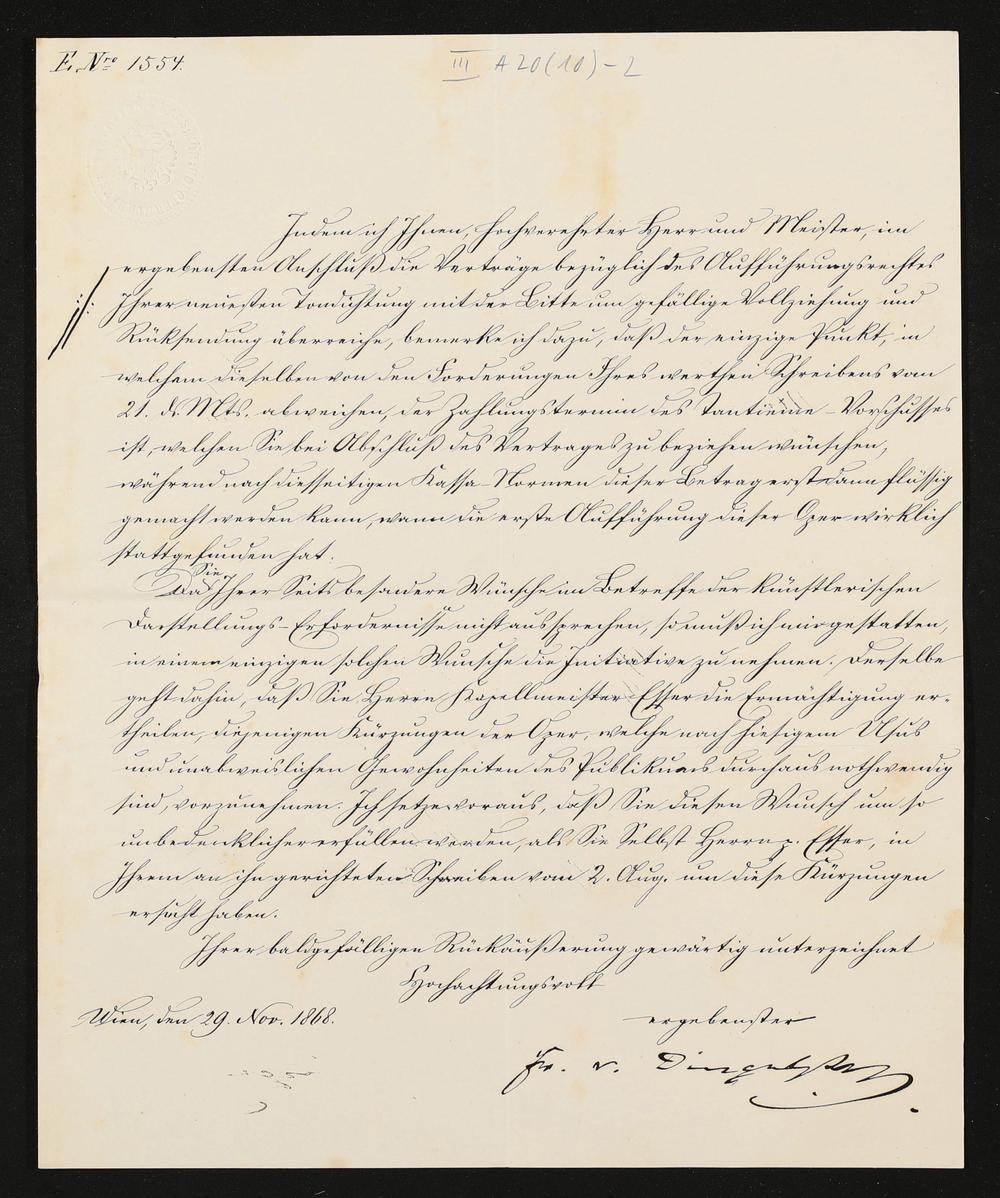 E. Nro 1554.
III A 20 (10) - 2
Indem ich Ihnen, hochverehrter Herr und Meister, im
ergebensten Anschluß die Verträge bezüglich des Aufführungsrechtes
Ihrer neuesten Tondichtung mit der Bitte um gefällige Vollziehung und
Rücksendung überreiche, bemerke ich dazu, daß der einzige Punkt, in
welchem dieselben von den Forderungen Ihres werthen Schreibens vom
21. ds. Mts. abweichen, der Zahlungstermin des Tantième-Vorschusses
ist, welchen Sie bei Abschluß des Vertrages zu beziehen wünschen,
während nach diesseitigen Kassa-Normen dieser Betrag erst dann flüssig
gemacht werden kann, wann die erste Aufführung dieser Oper wirklich
stattgefunden hat.
Da Sie Ihrer Seits besondere Wünsche im Betreffe der künstlerischen
Darstellungs-Erfordernisse nicht aussprechen, so muß ich mir gestatten,
in einem einzigen solchen Wunsche die Initiative zu nehmen. Derselbe
geht dahin, daß Sie Herrn Kapellmeister Esser die Ermächtigung er-
theilen, diejenigen Kürzungen der Oper, welche nach hiesigem Usus
und unabweislichen Gewohnheiten des Publikums durchaus nothwendig
sind, vorzunehmen. Ich setze voraus, daß Sie diesen Wunsch um so
unbedenklicher erfüllen werden, als Sie Selbst Herrn Esser, in
Ihrem an ihn gerichteten Schreiben vom 2. Aug. um diese Kürzungen
ersucht haben.
Ihrer baldgefälligen Rückäußerung gewärtig unterzeichnet
Hochachtungsvoll
Wien, den 29. Nov. 1868.
ergebenster
Fr. v. Dingelstedt